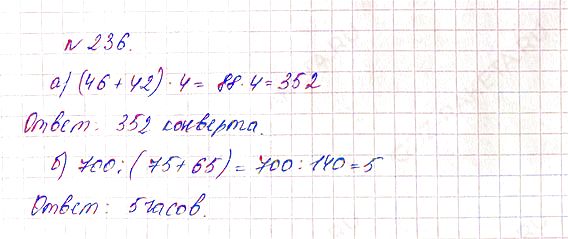 № 236.
а) (46 + 42) · 4 = 88 · 4 = 352
Ответ: 352 конверта.
б) 700 : (75 + 65) = 700 : 140 = 5
Ответ: 5 часов.